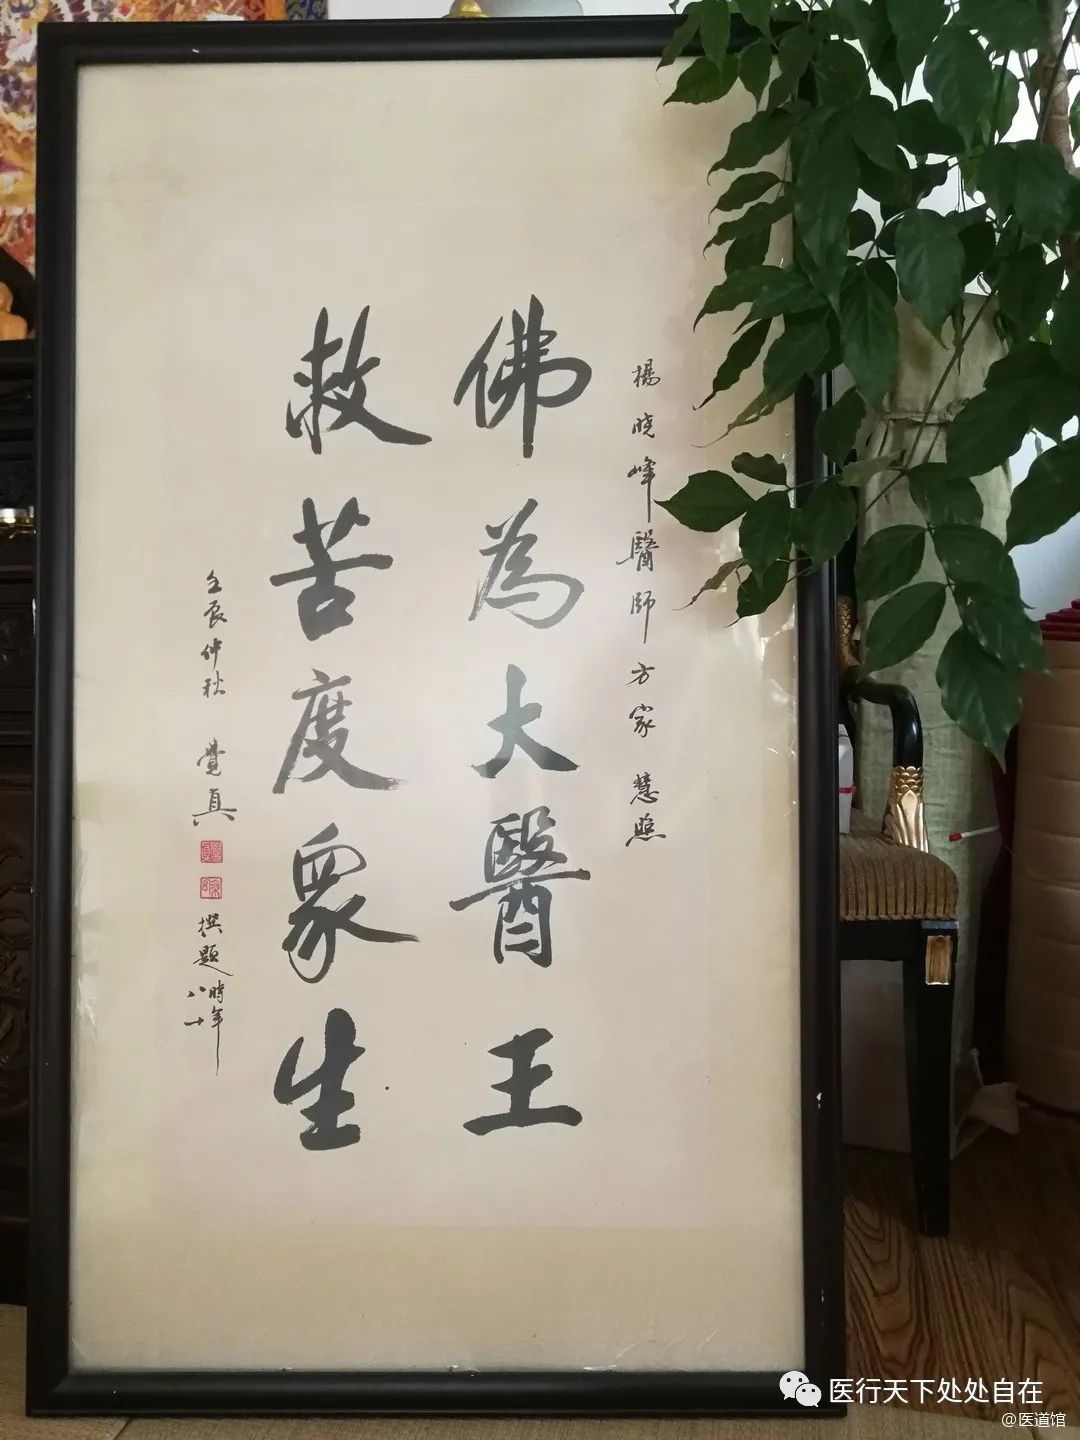 楊晓峰醫師方家 慧照
佛為大醫王
救苦度眾生
壬辰仲秋 覺真
撰題時年
八十
医行天下处处自在
@医道馆